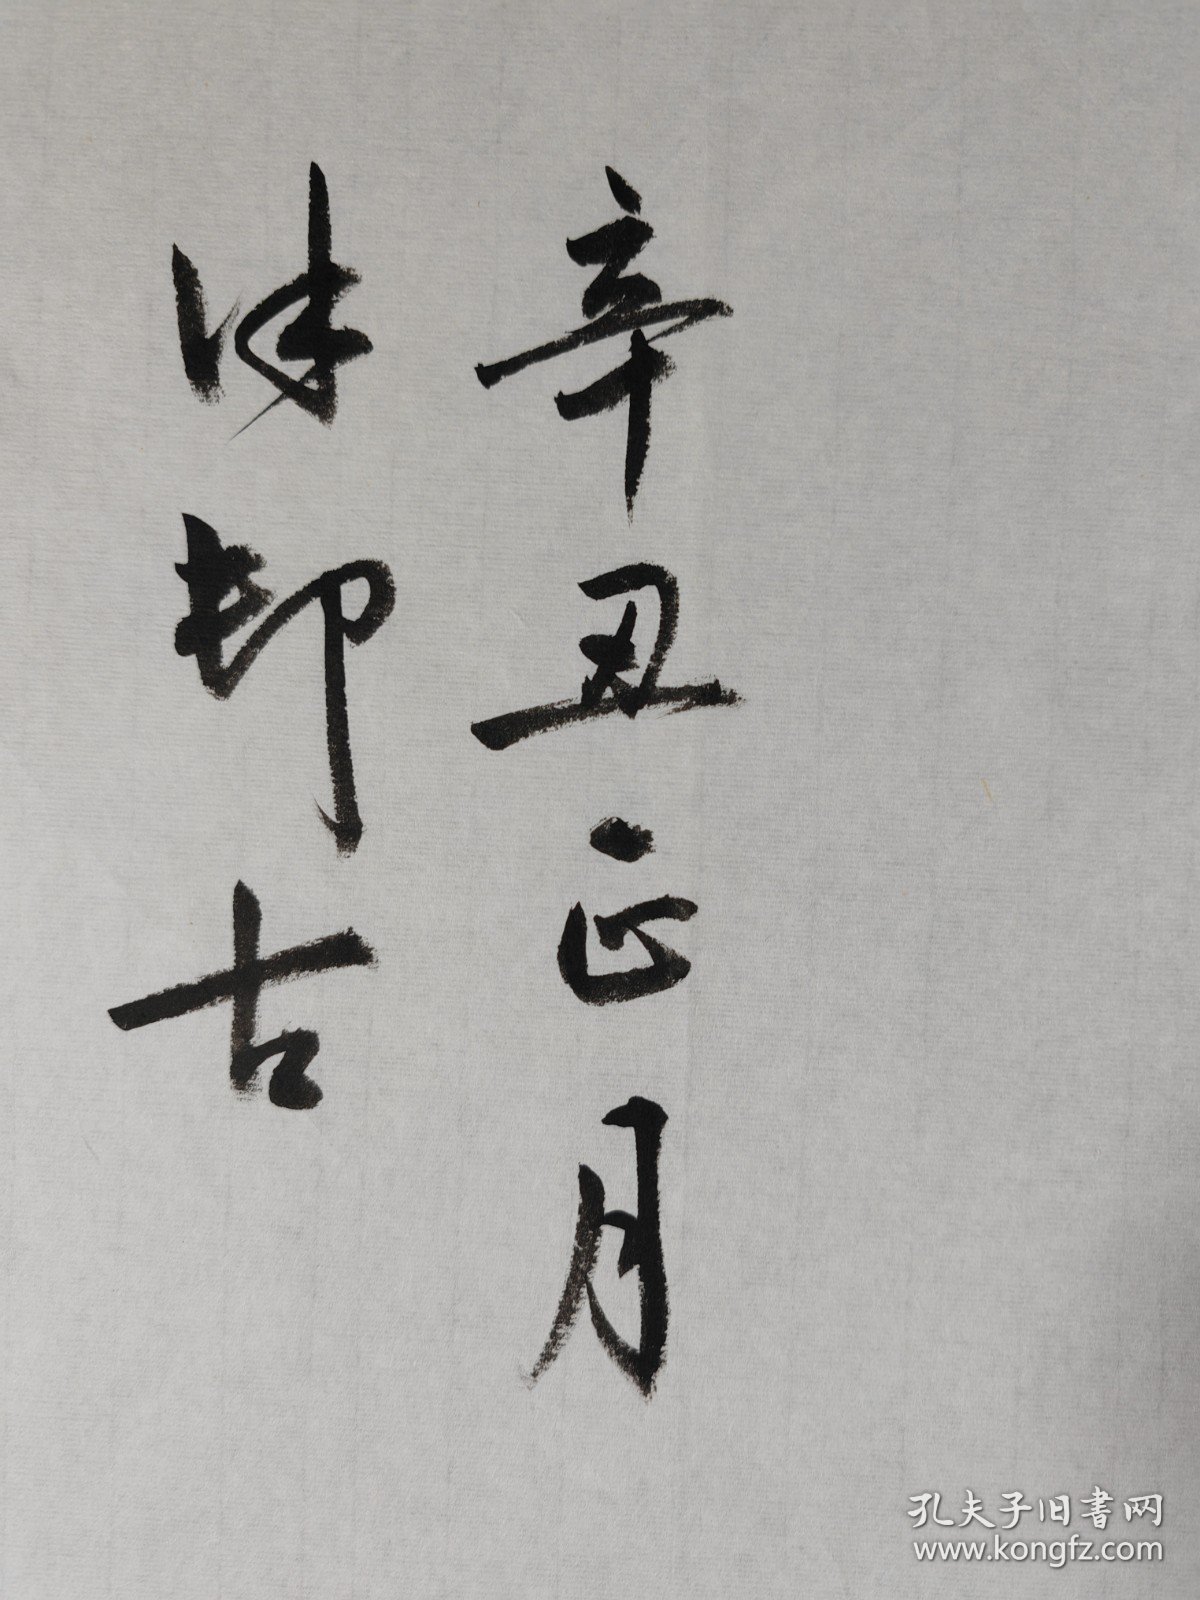 辛丑正月
沐邨古
孔夫子旧書网
www.kongfz.com